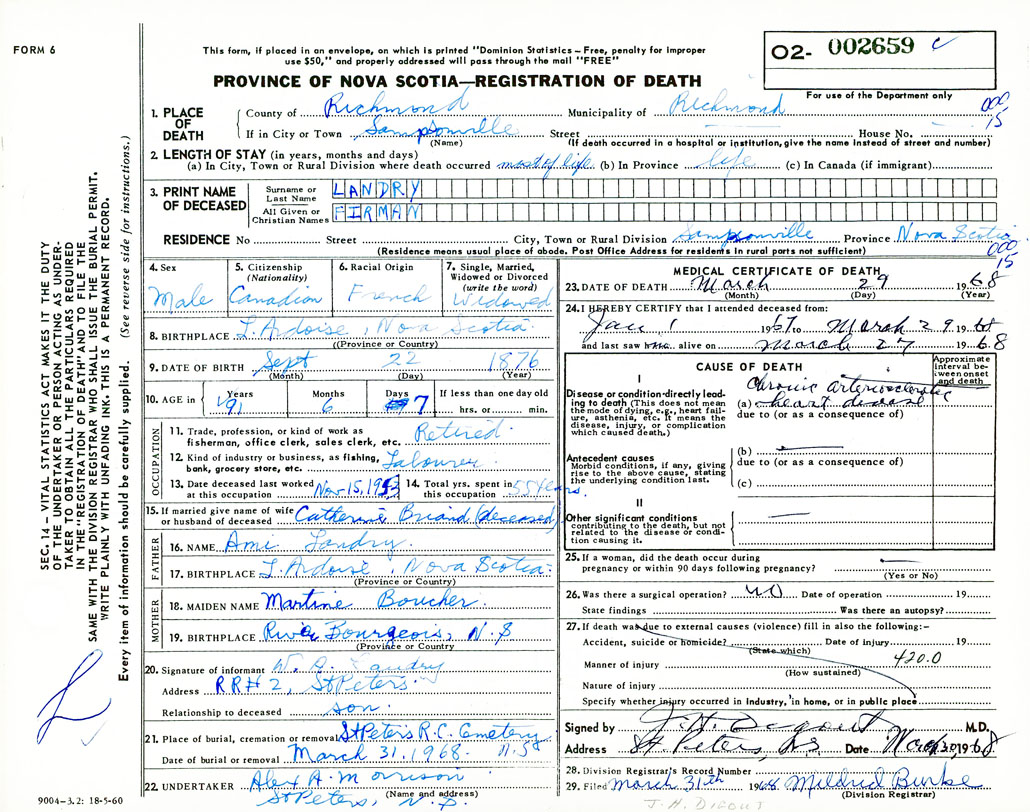 FORM 6
This form, if placed in an envelope, on which is printed "Dominion Statistics – Free, penalty for improper
use $50," and properly addressed will pass through the mail "FREE"
PROVINCE OF NOVA SCOTIA—REGISTRATION OF DEATH
O2- 002659 c
For use of the Department only
1. PLACE OF DEATH
County of Richmond Municipality of Richmond
000
15
If in City or Town Sampsonville Street House No.
(Name) (If death occurred in a hospital or institution, give the name instead of street and number)
2. LENGTH OF STAY (in years, months and days)
(a) In City, Town or Rural Division where death occurred most of life (b) In Province life (c) In Canada (if immigrant)
3. PRINT NAME OF DECEASED
Surname or Last Name LANDRY
All Given or Christian Names FIRMAN
RESIDENCE No Street City, Town or Rural Division Sampsonville Province Nova Scotia
(Residence means usual place of abode. Post Office Address for residents in rural parts not sufficient)
000
15
4. Sex
Male
5. Citizenship (Nationality)
Canadian
6. Racial Origin
French
7. Single, Married, Widowed or Divorced (write the word)
Widowed
8. BIRTHPLACE L'Ardoise, Nova Scotia
(Province or Country)
9. DATE OF BIRTH Sept 22 1876
(Month) (Day) (Year)
10. AGE in Years 91 Months 6 Days 7 If less than one day old hrs. or min.
OCCUPATION
11. Trade, profession, or kind of work as
fisherman, office clerk, sales clerk, etc. Retired
12. Kind of industry or business, as fishing,
bank, grocery store, etc. Labourer
13. Date deceased last worked
at this occupation Nov-15, 1953
14. Total yrs. spent in
this occupation 55 years.
15. If married give name of wife
or husband of deceased Catherine Briand (deceased)
FATHER
16. NAME Ami Landry
17. BIRTHPLACE L'Ardoise, Nova Scotia
(Province or Country)
MOTHER
18. MAIDEN NAME Martine Boucher
19. BIRTHPLACE River Bourgeois, N.S
(Province or Country)
20. Signature of informant W. A. Landry
Address RR# 2, St Peters
Relationship to deceased son.
21. Place of burial, cremation or removal St Peters R.C. Cemetery
Date of burial or removal March 31, 1968
22. UNDERTAKER Alex A. Morrison
(Name and address)
St Peters, N.S.
9004-3.2: 18-5-60
MEDICAL CERTIFICATE OF DEATH
23. DATE OF DEATH March 29 1968
(Month) (Day) (Year)
24. I HEREBY CERTIFY that I attended deceased from:
Jan 1 1967 to March 29 1968
and last saw him alive on March 27 1968
CAUSE OF DEATH
Approximate interval between onset and death
I
Disease or condition directly leading to death (This does not mean the mode of dying, e.g., heart failure, asthenia, etc. It means the disease, injury, or complication which caused death.)
(a) Chronic arteriosclerotic
heart disease
due to (or as a consequence of)
Antecedent causes
Morbid conditions, if any, giving rise to the above cause, stating the underlying condition last.
(b)
due to (or as a consequence of)
(c)
II
Other significant conditions
contributing to the death, but not related to the disease or condition causing it.
25. If a woman, did the death occur during
pregnancy or within 90 days following pregnancy?
(Yes or No)
26. Was there a surgical operation? no Date of operation 19
State findings Was there an autopsy?
27. If death was due to external causes (violence) fill in also the following:-
Accident, suicide or homicide? Date of injury 19
(State which)
420.0
Manner of injury
(How sustained)
Nature of injury
Specify whether injury occurred in industry, in home, or in public place
Signed by J. H. Digout M.D.
Address St Peters, NS Date March 30, 1968
28. Division Registrar's Record Number
29. Filed March 31th 1968 Mildred Burke
(Division Registrar)
J. H. DIGOUT
SEC. 14 – VITAL STATISTICS ACT MAKES IT THE DUTY
OF THE UNDERTAKER OR PERSON ACTING AS UNDER-
TAKER TO OBTAIN ALL THE PARTICULARS REQUIRED
IN THE "REGISTRATION OF DEATH" AND TO FILE THE
SAME WITH THE DIVISION REGISTRAR WHO SHALL ISSUE THE BURIAL PERMIT.
WRITE PLAINLY WITH UNFADING INK. THIS IS A PERMANENT RECORD.
Every item of information should be carefully supplied. (See reverse side for instructions.)